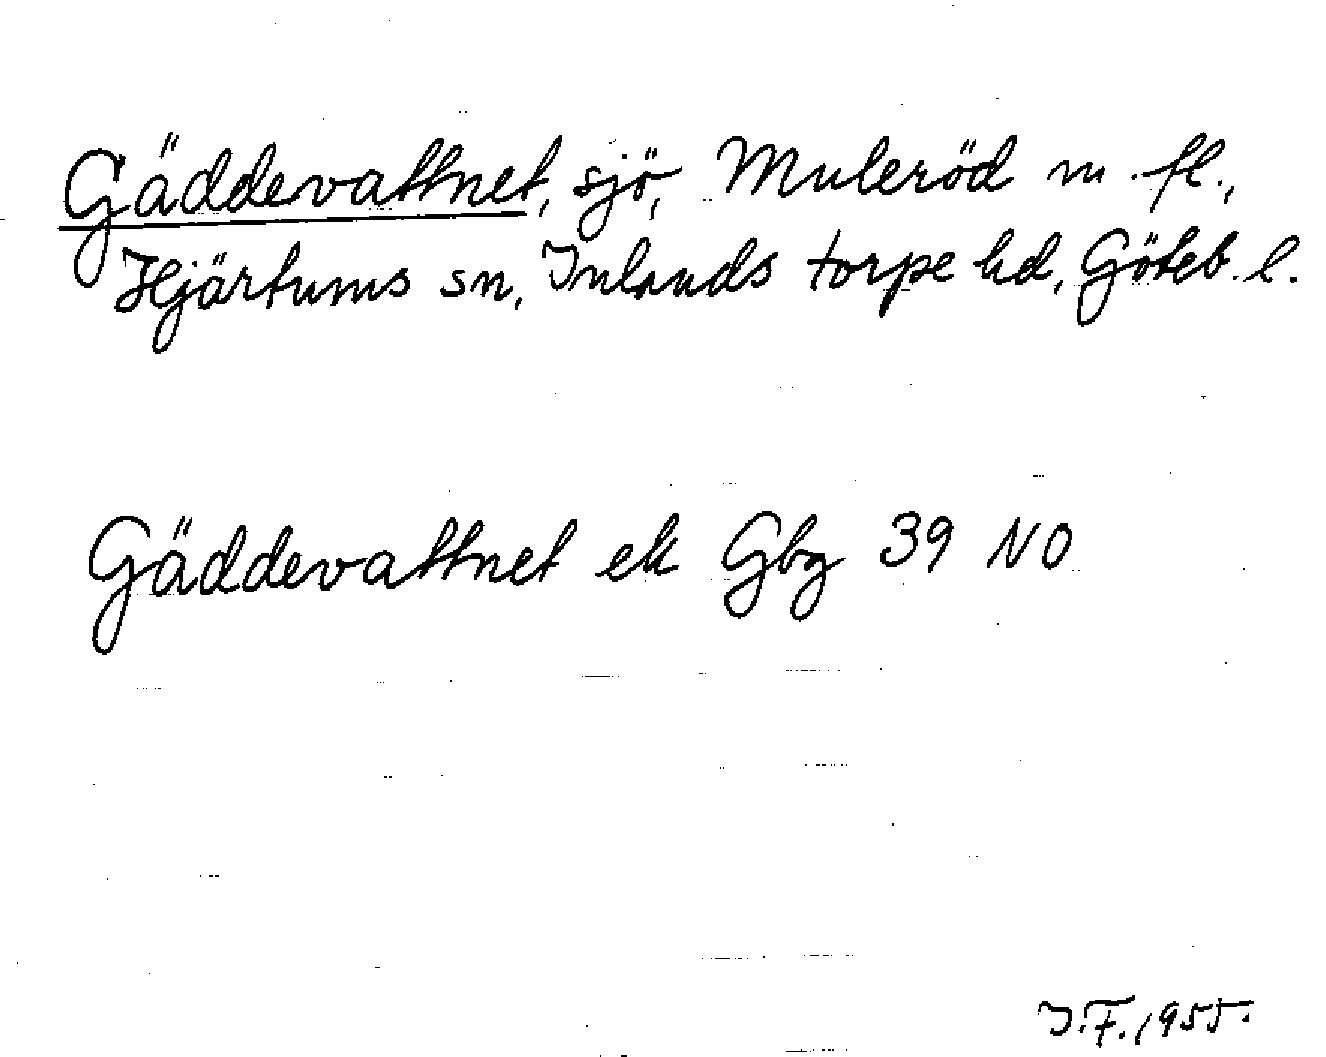 Gäddevattnet, sjö, Muleröd m.fl.,
Hjärtums sn, Inlands torpe hd, Göteb. l.
Gäddevattnet ek Gbg 39 NO
I.F. 1955.